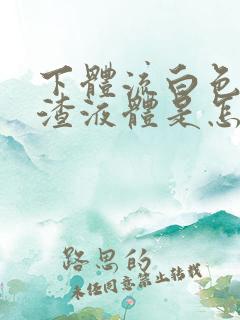 下體流白色
渣液體是怎
路思的
未经同意禁止转载